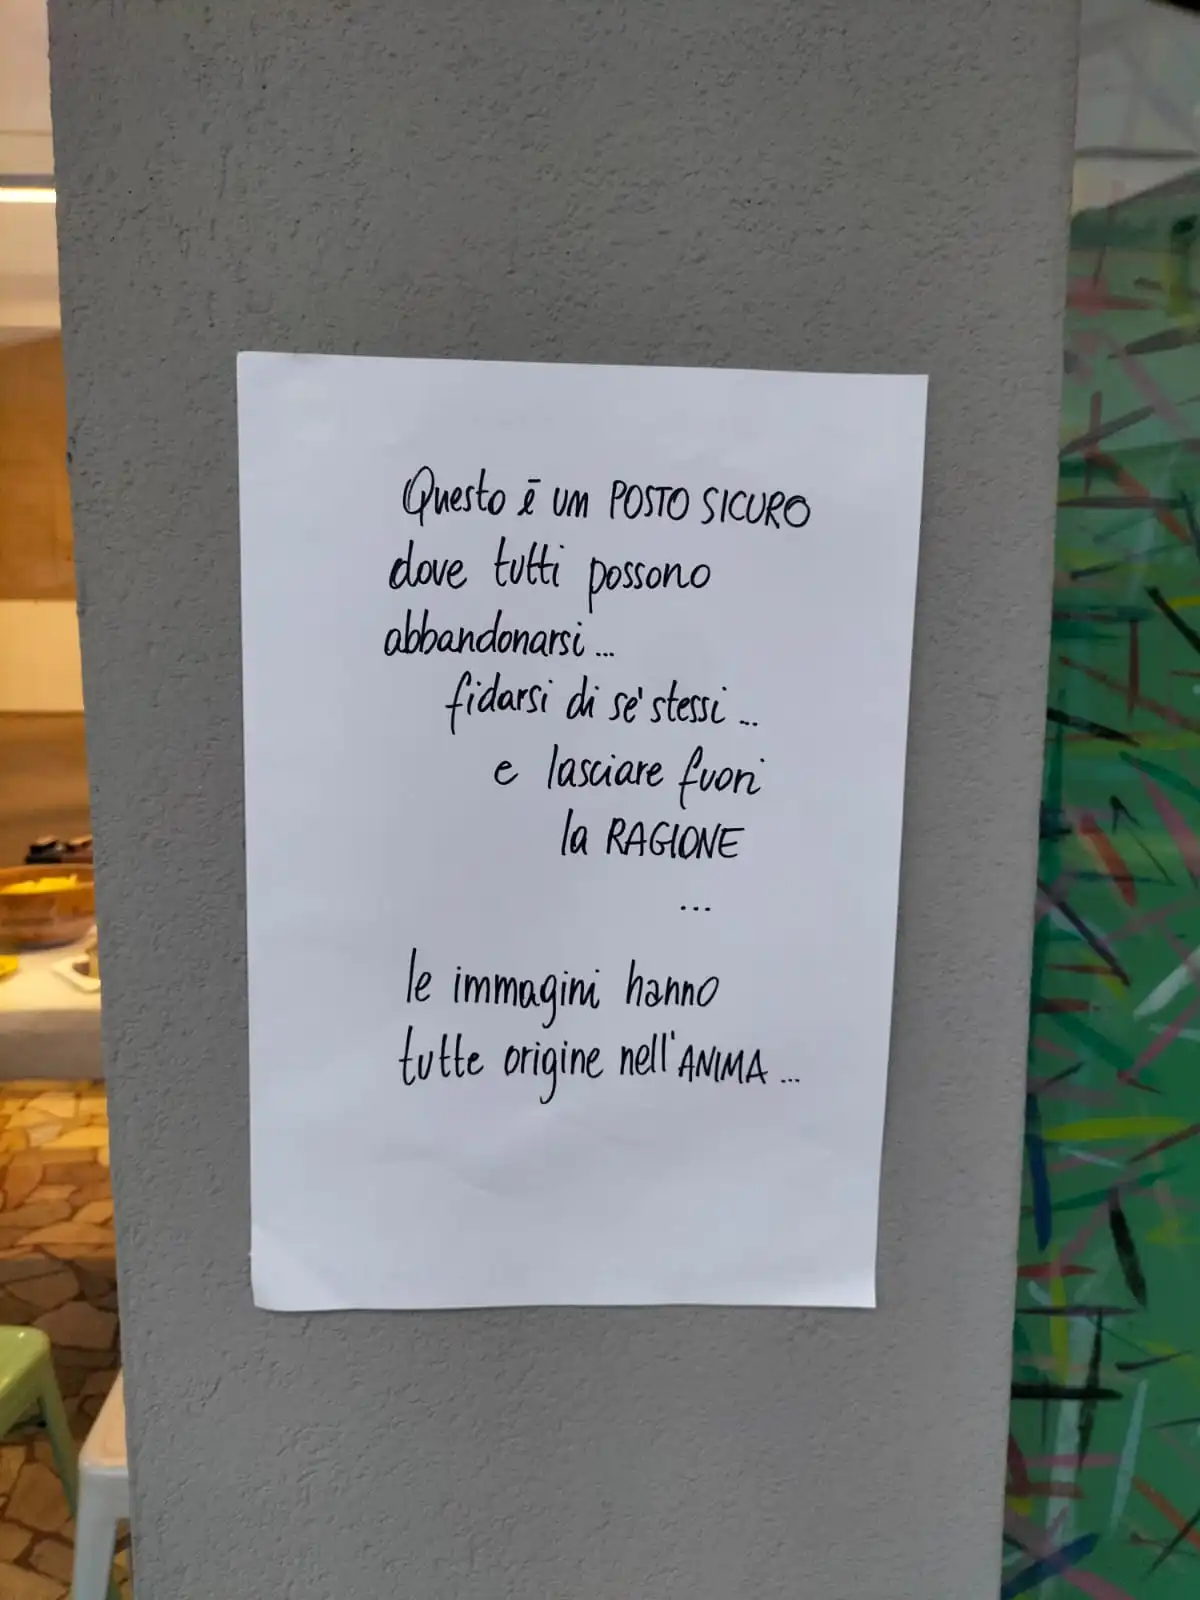 Questo è un POSTO SICURO
dove tutti possono
abbandonarsi...
fidarsi di sè stessi...
e lasciare fuori
la RAGIONE
...
le immagini hanno
tutte origine nell'ANIMA...